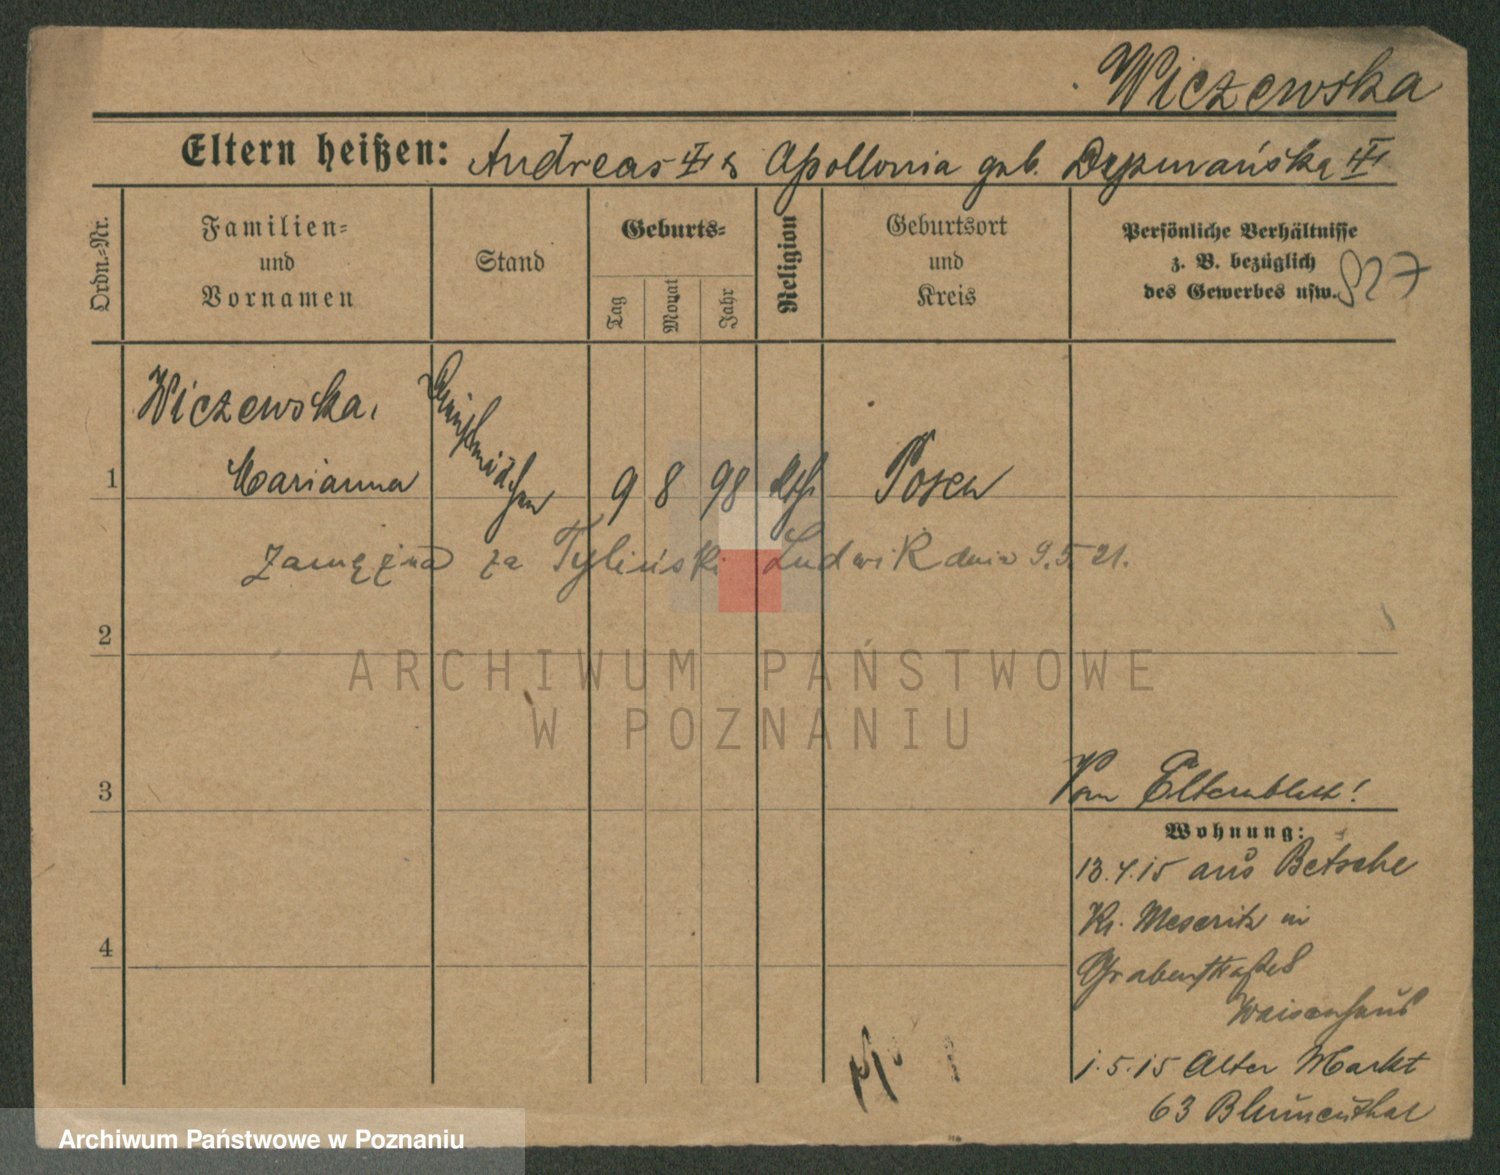 Wiczewska
Eltern heißen: Andreas u. Apollonia geb.
Ordn.-Nr.
Familien-
und
Vornamen
Stand
Geburts-
Tag
Monat
Jahr
Religion
Geburtsort
und
Kreis
Persönliche Verhältnisse
z. B. bezüglich
des Gewerbes usw.
927
Wiczewska,
Dienstmädchen
1 Marianna 9 8 98 kth Posen
Zamężna za Tyliński Ludwik dnia 9.5.21.
2
ARCHIWUM PAŃSTWOWE
W POZNANIU
Vom Elternblatt!
3
Wohnung:
13.4.15 aus Betsche
Kr. Meseritz in
4
Grabenstraße 8
Waisenhaus
1.5.15 Alter Markt
63 Blumenthal
Archiwum Państwowe w Poznaniu